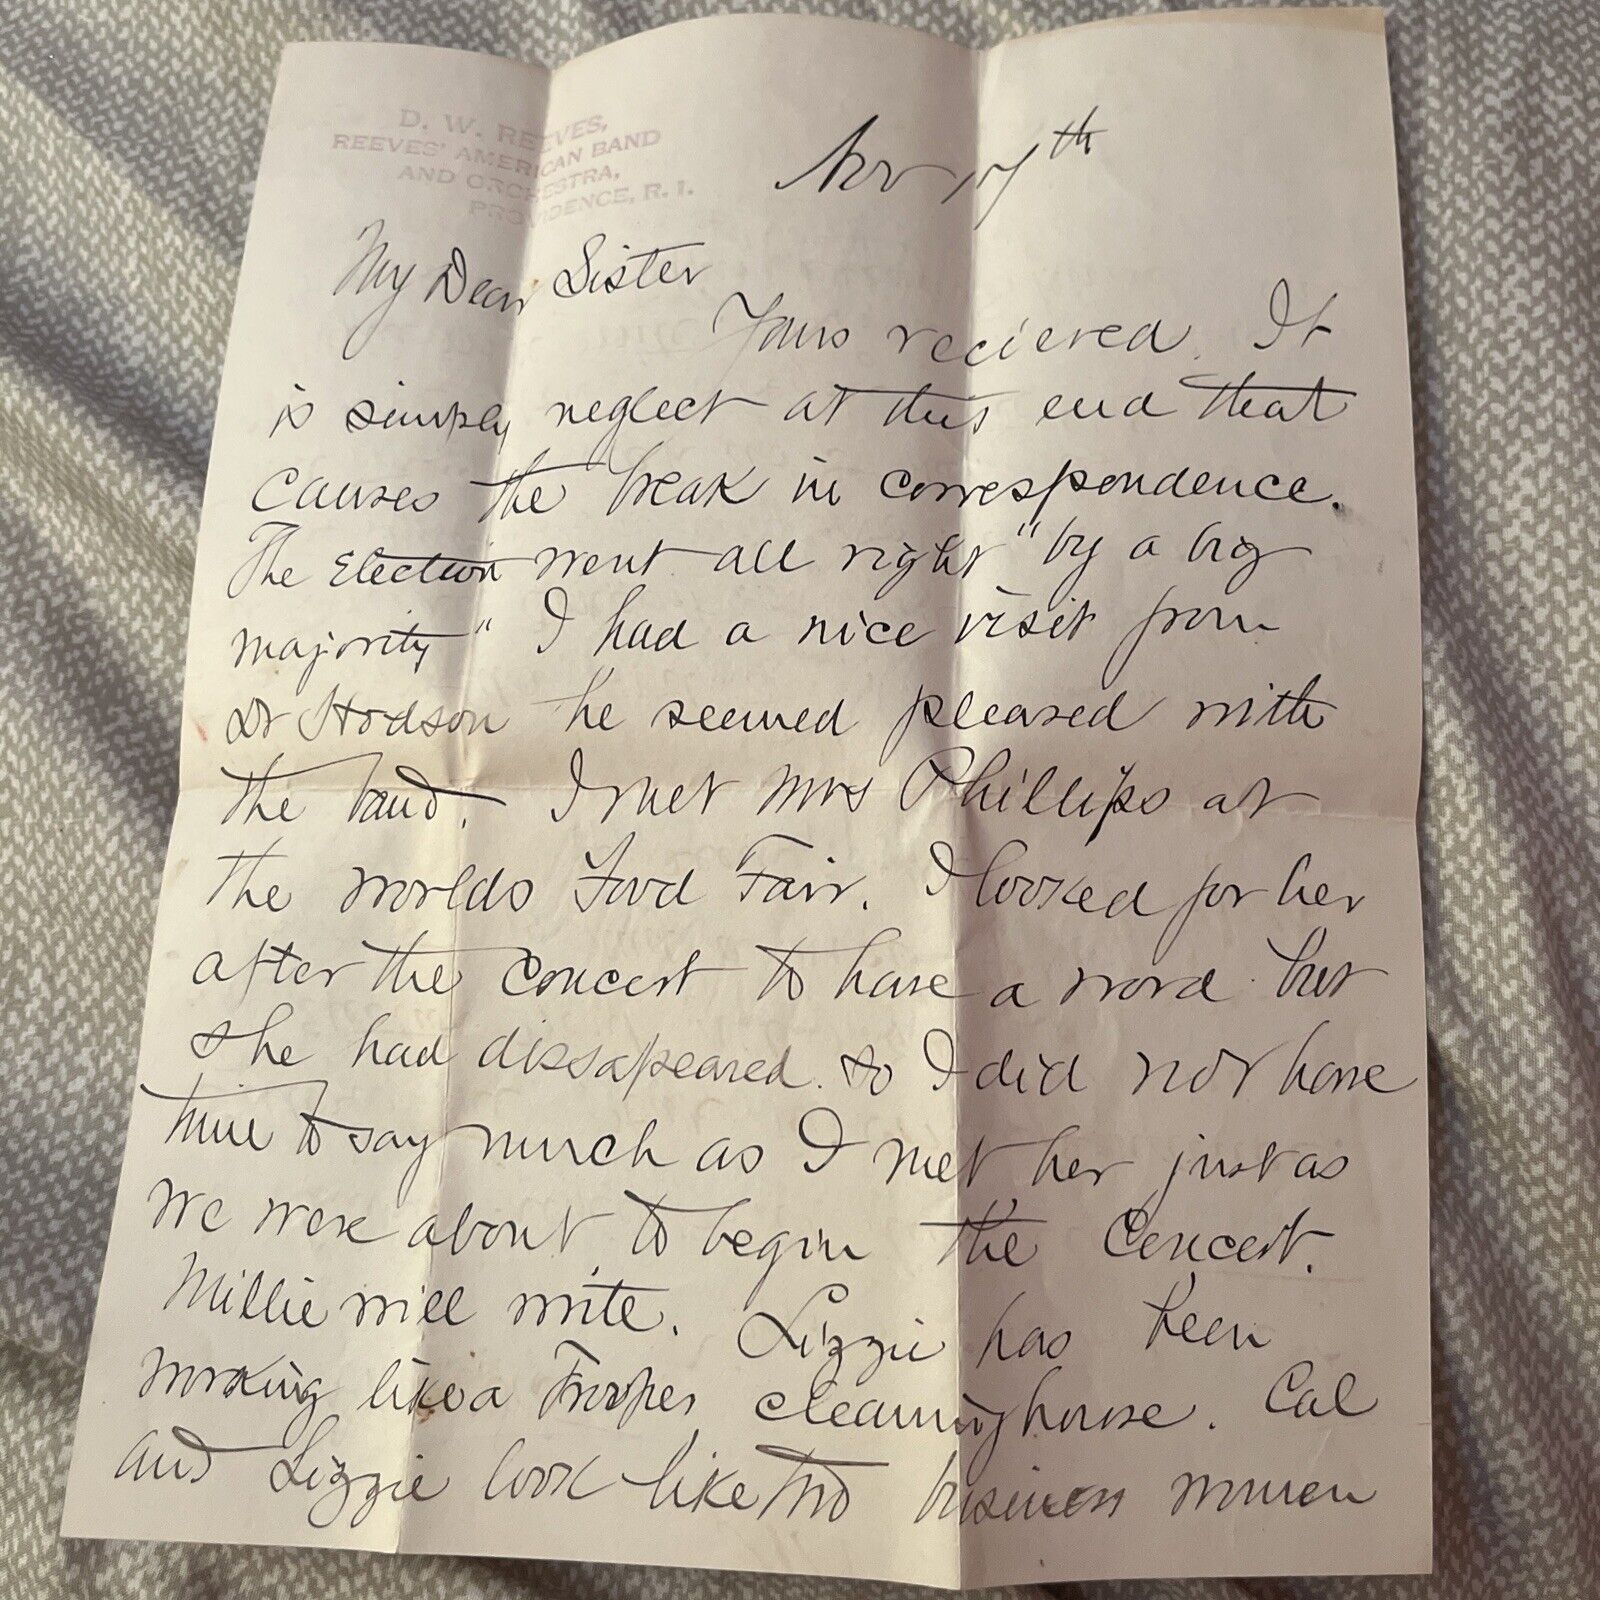 D. W. REEVES,
REEVES' AMERICAN BAND
AND ORCHESTRA,
PROVIDENCE, R. I.
Nov 17th
My Dear Sister
Yours recieved. It
is simply neglect at this end that
causes the break in correspondence.
The Election went all right "by a big
majority" I had a nice visit from
Dr Hodson he seemed pleased with
the band. I met Mrs Phillips at
the worlds Food Fair. I looked for her
after the concert to have a word but
she had dissapeared. so I did not have
time to say much as I met her just as
we were about to begin the Concert.
Millie will write. Lizzie has been
working like a Trooper cleaning house. Cal
and Lizzie look like two business women